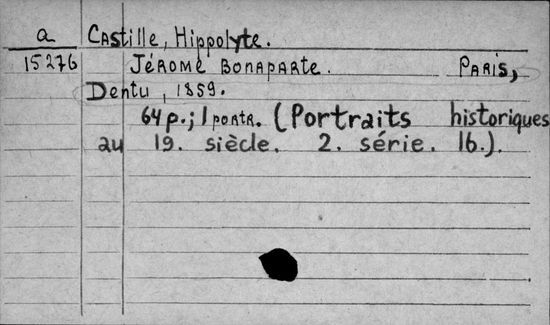 a Castille, Hippolyte.
15276 Jérome Bonaparte. Paris,
Dentu, 1859.
64 p.; 1 portr. (Portraits historiques
au 19. siècle. 2. série. 16.).